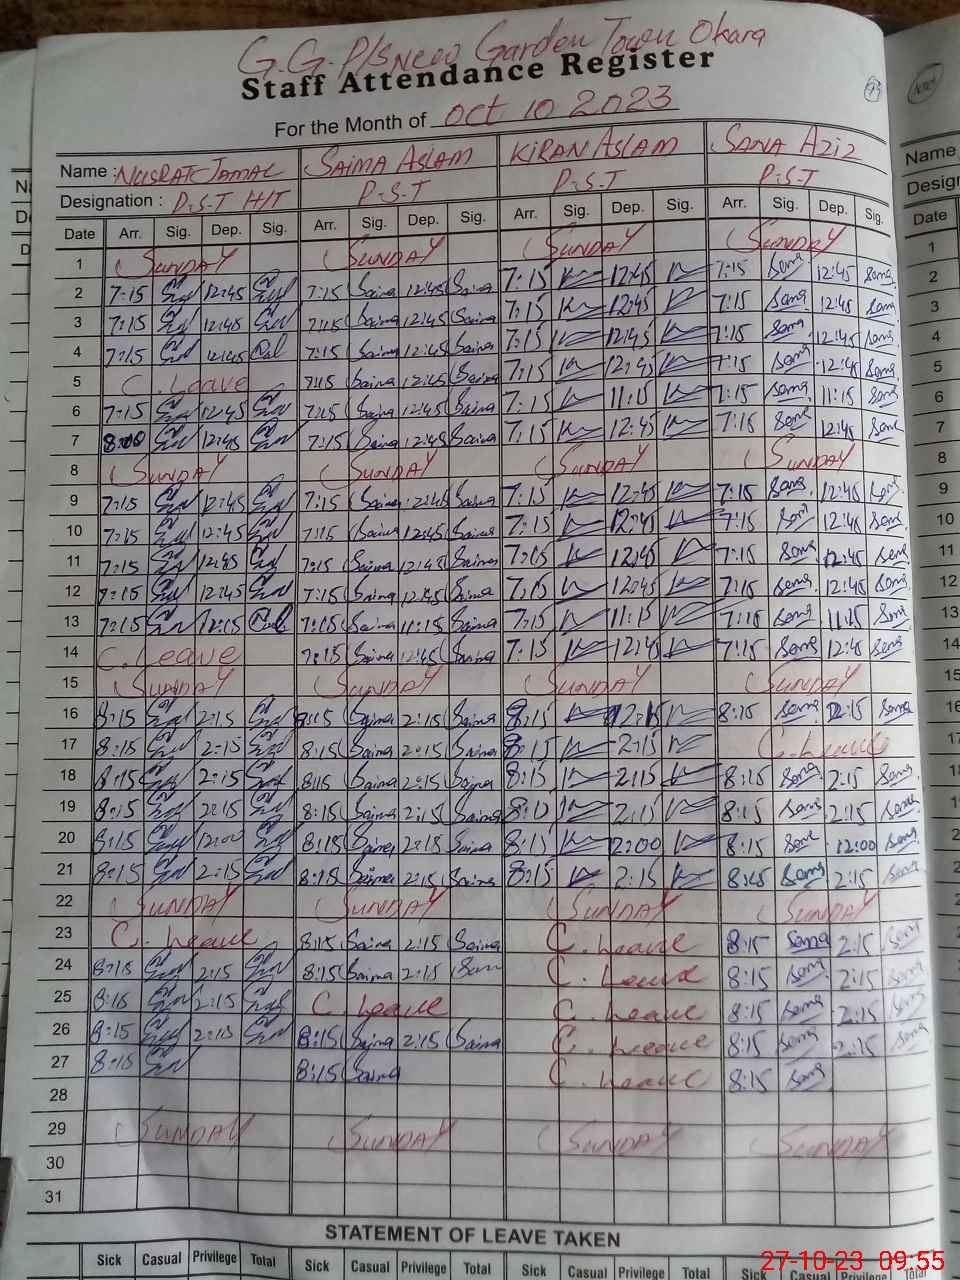 G.G.P/S New Garden Town Okara
Staff Attendance Register
For the Month of Oct 10 2023
Name : NUSRAT JAMAL SAIMA ASLAM KIRAN ASLAM SANA AZIZ
Designation : P.S.T H/T P.S.T P.S.T P.S.T
Date Arr. Sig. Dep. Sig. Arr. Sig. Dep. Sig. Arr. Sig. Dep. Sig. Arr. Sig. Dep. Sig.
1 SUNDAY SUNDAY SUNDAY SUNDAY
2 7:15 12:45 7:15 Saima 12:45 Saima 7:15 12:45 7:15 Sana 12:45 Sana
3 7:15 12:45 7:15 Saima 12:45 Saima 7:15 12:45 7:15 Sana 12:45 Sana
4 7:15 12:45 7:15 Saima 12:45 Saima 7:15 12:45 7:15 Sana 12:45 Sana
5 C. Leave 7:15 Saima 12:45 Saima 7:15 12:45 7:15 Sana 12:45 Sana
6 7:15 12:45 7:15 Saima 12:45 Saima 7:15 11:15 7:15 Sana 11:15 Sana
7 8:00 12:45 7:15 Saima 12:45 Saima 7:15 12:45 7:15 Sana 12:45 Sana
8 SUNDAY SUNDAY SUNDAY SUNDAY
9 7:15 12:45 7:15 Saima 12:45 Saima 7:15 12:45 7:15 Sana 12:45 Sana
10 7:15 12:45 7:15 Saima 12:45 Saima 7:15 12:45 7:15 Sana 12:45 Sana
11 7:15 12:45 7:15 Saima 12:45 Saima 7:15 12:45 7:15 Sana 12:45 Sana
12 7:15 12:45 7:15 Saima 12:45 Saima 7:15 12:45 7:15 Sana 12:45 Sana
13 7:15 7:15 Saima 11:15 Saima 7:15 11:15 7:15 Sana 11:15 Sana
14 C. Leave 7:15 Saima 12:45 Saima 7:15 12:45 7:15 Sana 12:45 Sana
15 SUNDAY SUNDAY SUNDAY SUNDAY
16 8:15 2:15 8:15 Saima 2:15 Saima 8:15 2:15 8:15 Sana 2:15 Sana
17 8:15 2:15 8:15 Saima 2:15 Saima 8:15 2:15 C. Leave
18 8:15 2:15 8:15 Saima 2:15 Saima 8:15 2:15 8:15 Sana 2:15 Sana
19 8:15 2:15 8:15 Saima 2:15 Saima 8:15 2:15 8:15 Sana 2:15 Sana
20 8:15 12:00 8:15 Saima 2:15 Saima 8:15 12:00 8:15 Sana 12:00 Sana
21 8:15 2:15 8:15 Saima 2:15 Saima 8:15 2:15 8:15 Sana 2:15 Sana
22 SUNDAY SUNDAY SUNDAY SUNDAY
23 C. Leave 8:15 Saima 2:15 Saima C. Leave 8:15 Sana 2:15 Sana
24 8:15 2:15 8:15 Saima 2:15 C. Leave 8:15 Sana 2:15 Sana
25 8:15 2:15 C. Leave C. Leave 8:15 Sana 2:15 Sana
26 8:15 2:15 8:15 Saima 2:15 Saima C. Leave 8:15 Sana 2:15 Sana
27 8:15 8:15 Saima C. Leave 8:15 Sana
28
29 SUNDAY SUNDAY SUNDAY SUNDAY
30
31
STATEMENT OF LEAVE TAKEN
Sick Casual Privilege Total Sick Casual Privilege Total Sick Casual Privilege Total Sick Casual Privilege Total
27-10-23 09:55